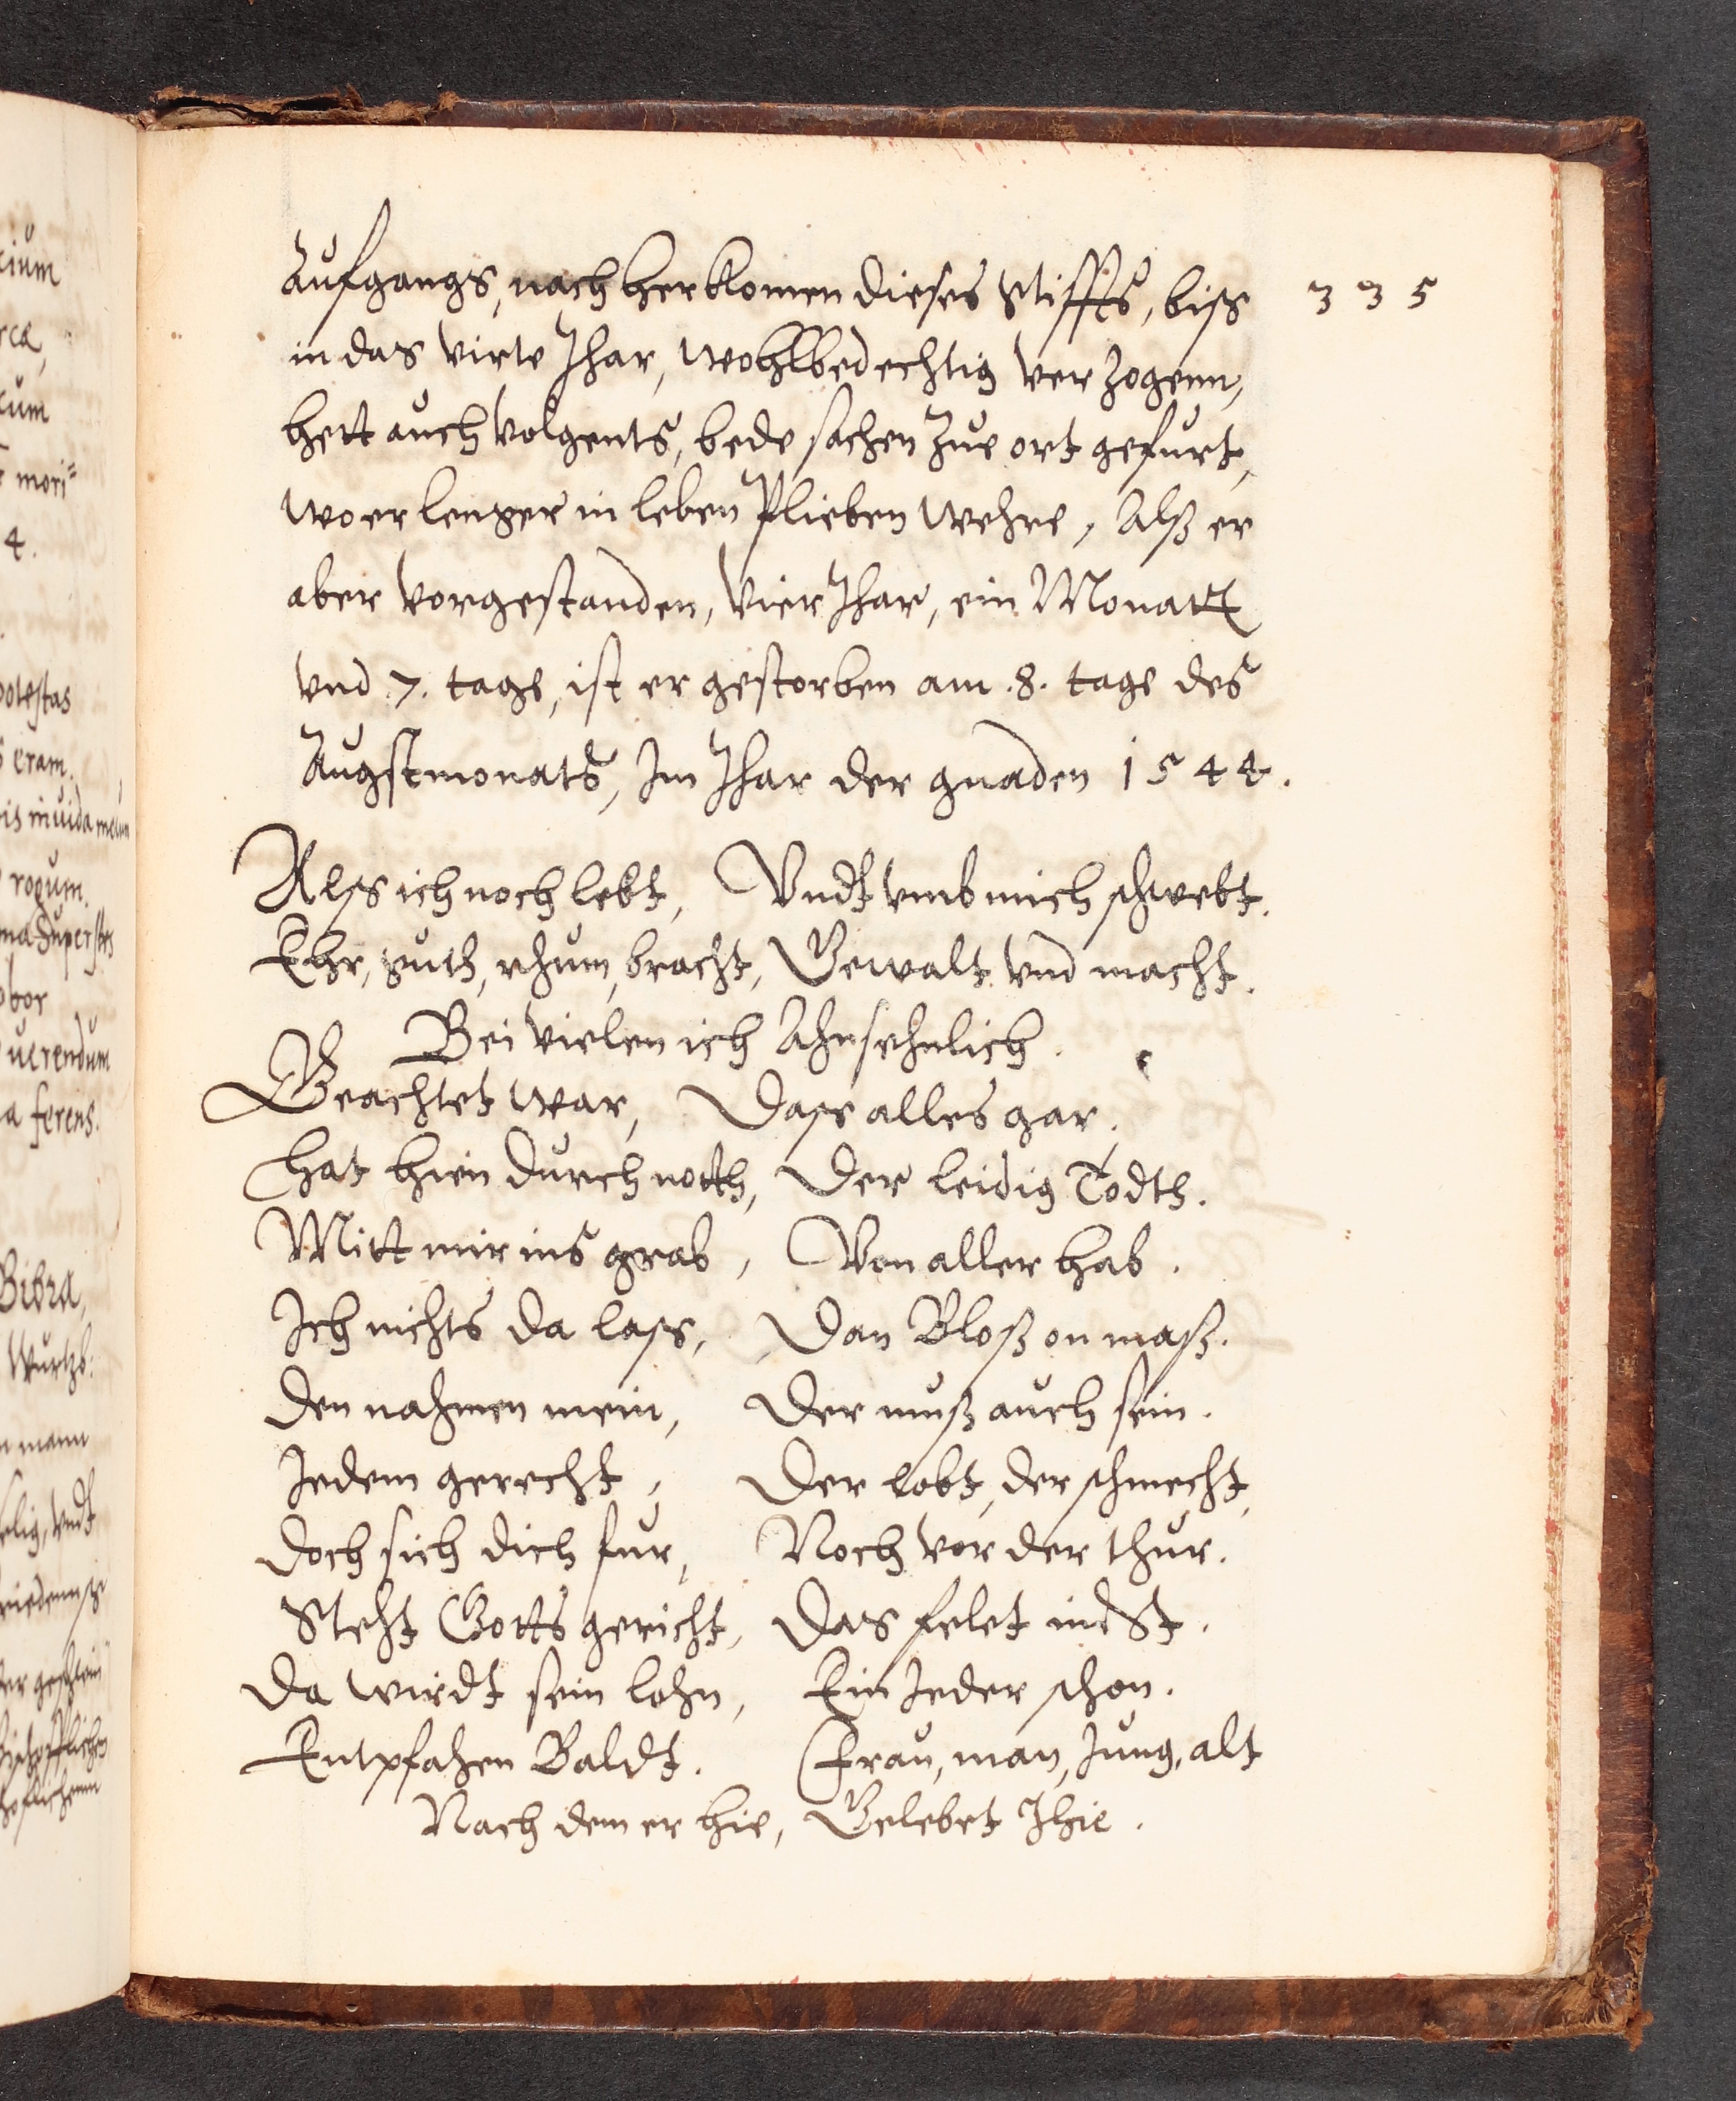 Aufgangs, nach herkomen dieses Stiffts, biss
335
in das virte Jhar, wohlbedechtig verzogenn,
hett auch volgents, bede sachen zue ort gefurt,
wo er lenger in leben plieben wehre, Alß er
aber vorgestanden, vier Jhar, ein Monatt
vnd .7. tage, ist er gestorben am .8. tage des
Augstmonats, Im Jhar der gnaden 1544.
Alss ich noch lebt, Vndt vmb mich schwebt.
Ehr, guth, rhum, bracht, Gewalt vnd macht.
Bei vielen ich Ahnsehnlich.
Geachtet war, Dass alles gar.
hat hien durch notth, Der leidig Todth.
Mitt mir ins grab, Von aller hab.
Ich nichts da lass, Dan Bloß on maß.
Den nahmen mein, Der muß auch sein.
Jedem gerecht, Der lobt, der schmecht,
Doch sich dich fur, Noch vor der thur.
Steht Gotts gericht, Das felet
Da wirdt sein lohn, Ein Jeder schon.
Entpfahen Baldt. Frau, man, Jung, alt
Nach dem er hie, Gelebet Jhie.
cium
rca,
cum
mori=
4.
potestas
eram.
is inuida
rogum.
ma Superstes
obor
uerendum
a ferens.
Bibra,
Wurtzb:
mann
elig, vndt